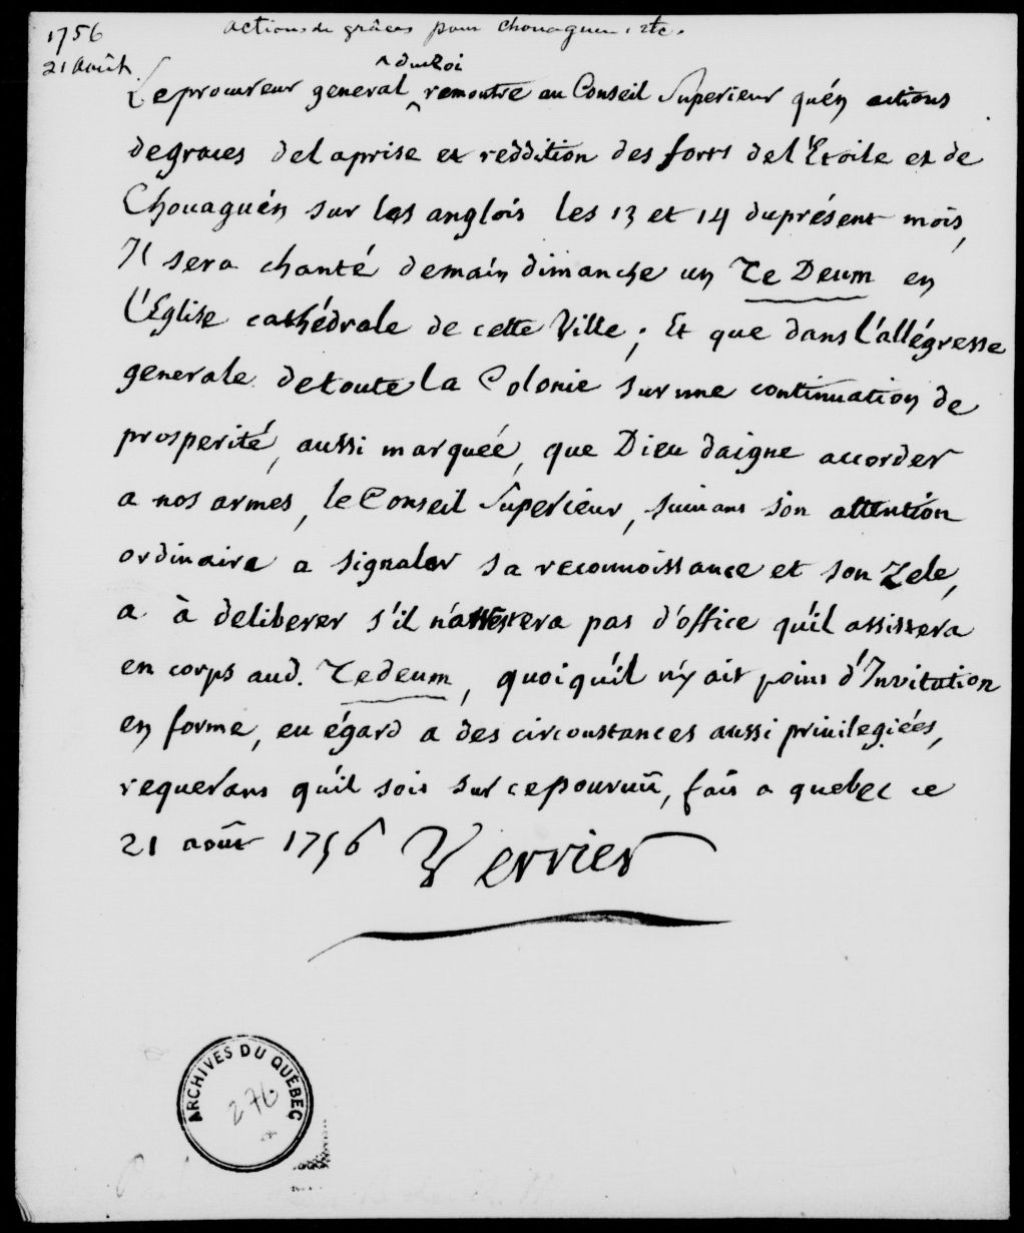 1756
21 Août
Actions de grâces pour Chouaguen, etc.
du Roi
Le procureur general remontre au Conseil Superieur qu'én actions
de graces de la prise et reddition des forts de l'Etoile et de
Chouaguén sur les anglois les 13 et 14 du présent mois,
Il sera chanté demain dimanche un Te Deum en
l'Eglise cathédrale de cette Ville; Et que dans l'allégresse
generale de toute la Colonie sur une continuation de
prosperité, aussi marquée, que Dieu daigne accorder
a nos armes, le Conseil Superieur, suivant son attention
ordinaire a signaler sa reconnoissance et son Zele,
a à deliberer s'il n'arrestera pas d'office qu'il assistera
en corps aud. Tedeum, quoiqu'il n'y ait point d'Invitation
en forme, eu égard a des circonstances aussi privilegiées,
requerant qu'il soit sur ce pourvuü, fait a quebec ce
21 août 1756 Verrier
ARCHIVES DU QUÉBEC
276